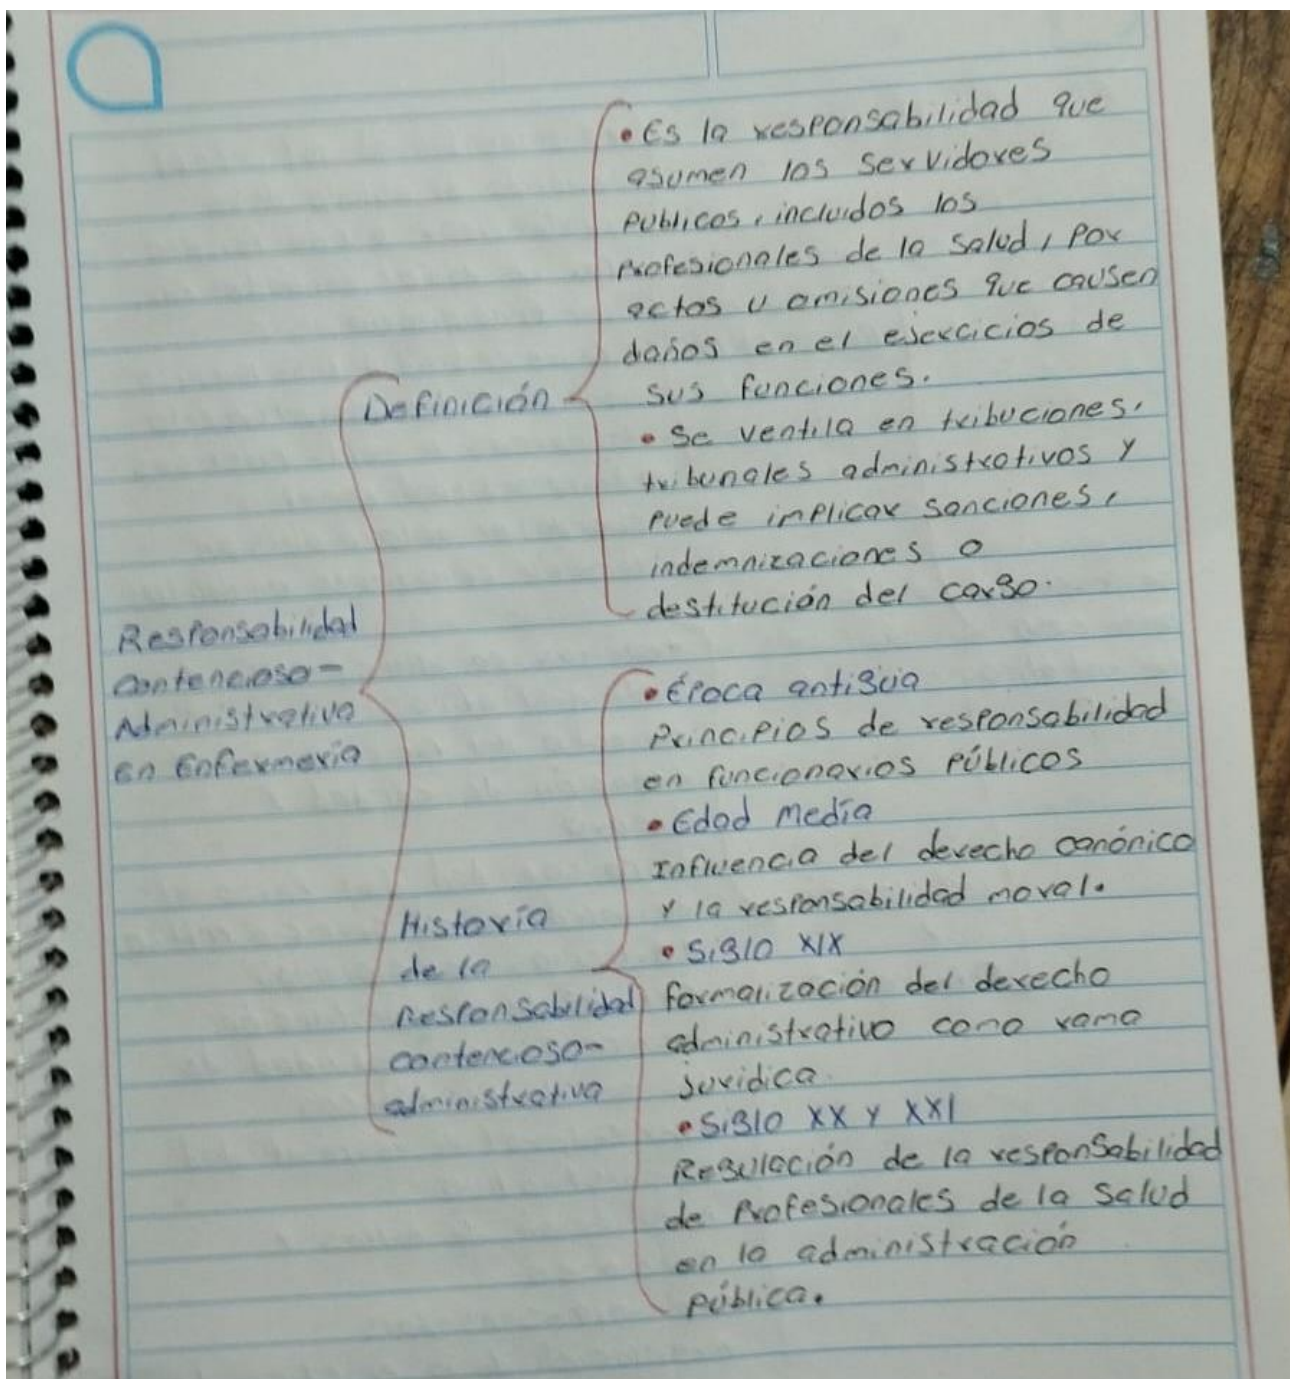 Responsabilidad
Contencioso-
Administrativa
en Enfermería
Definición
• Es la responsabilidad que
asumen los servidores
públicos, incluidos los
profesionales de la salud, por
actos u omisiones que causen
daños en el ejercicios de
sus funciones.
• Se ventila en tribuciones.
tribunales administrativos y
puede implicar sanciones,
indemnizaciones o
destitución del cargo.
Historía
de la
Responsabilidad
contencioso-
administrativa
• Época antigua
Principios de responsabilidad
en funcionarios públicos
• Edad Media
Influencia del derecho canónico
y la responsabilidad moral.
• Siglo XIX
formalización del derecho
administrativo como rama
juridica.
• Siglo XX y XXI
Regulación de la responsabilidad
de Profesionales de la Salud
en la administración
pública.